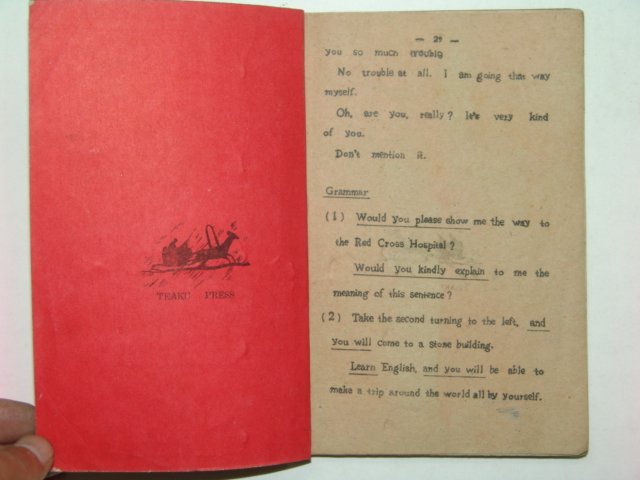 TEAKU PRESS
— 29 —
you so much trouble
No trouble at all. I am going that way
myself.
Oh, are you, really? It's very kind
of you.
Don't mention it.
Grammar
(1) Would you please show me the way to
the Red Cross Hospital?
Would you kindly explain to me the
meaning of this sentence?
(2) Take the second turning to the left, and
you will come to a stone building.
Learn English, and you will be able to
make a trip around the world all by yourself.